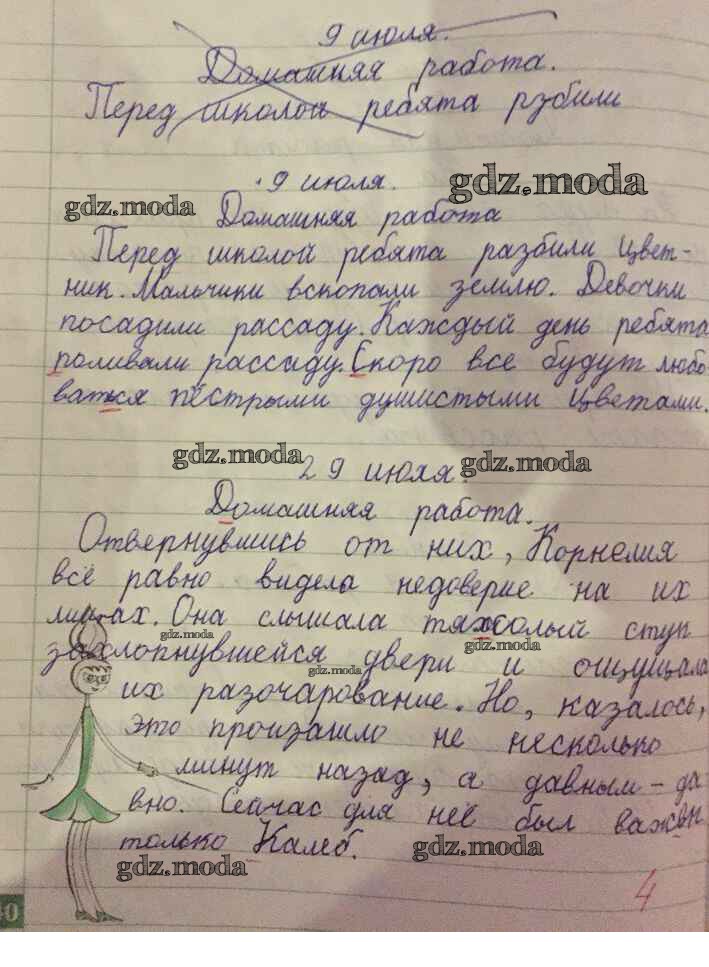 9 июля.
Домашняя работа.
Перед школой ребята рзбили
9 июля.
gdz.moda
gdz.moda
Домашняя работа
Перед школой ребята разбили цвет-
ник. Мальчики вскопали землю. Девочки
посадили рассаду. Каждый день ребята
роливали рассаду. Скоро все будут любо
ваться пёстрыми душистыми цветами.
gdz.moda
29 июля.
gdz.moda
Домашняя работа.
Отвернувшись от них, Корнелия
всё равно видела недоверие на их
лицах. Она слышала тяжолый стук
gdz.moda
gdz.moda
захлопнувшейся двери и ощущала
gdz.moda
их разочарование. Но, казалось,
это произашло не несколько
минут назад, а давным-да
вно. Сейчас для неё был важен
только Калеб.
gdz.moda
gdz.moda
4